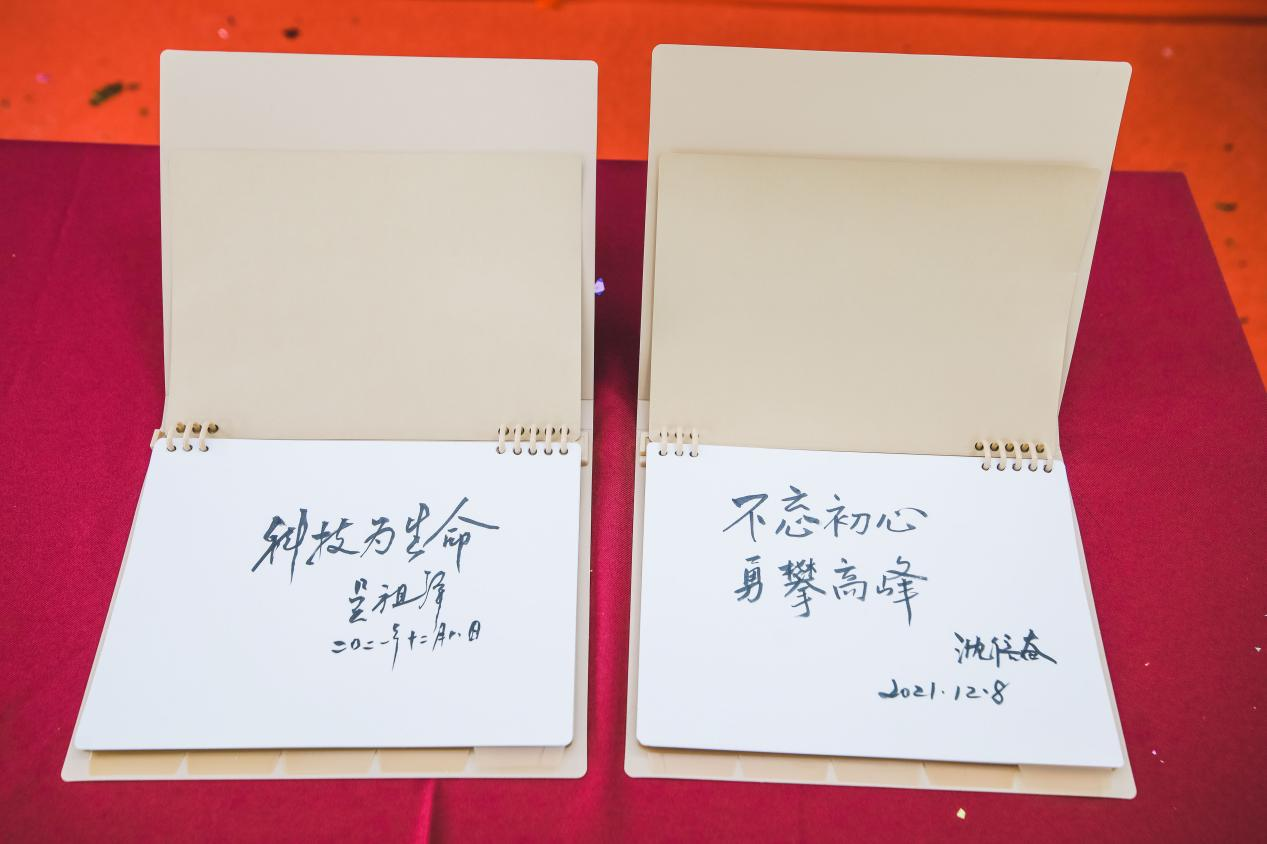 科技为生命
吴祖泽
二〇二一年十二月八日
不忘初心
勇攀高峰
沈倍奋
2021.12.8